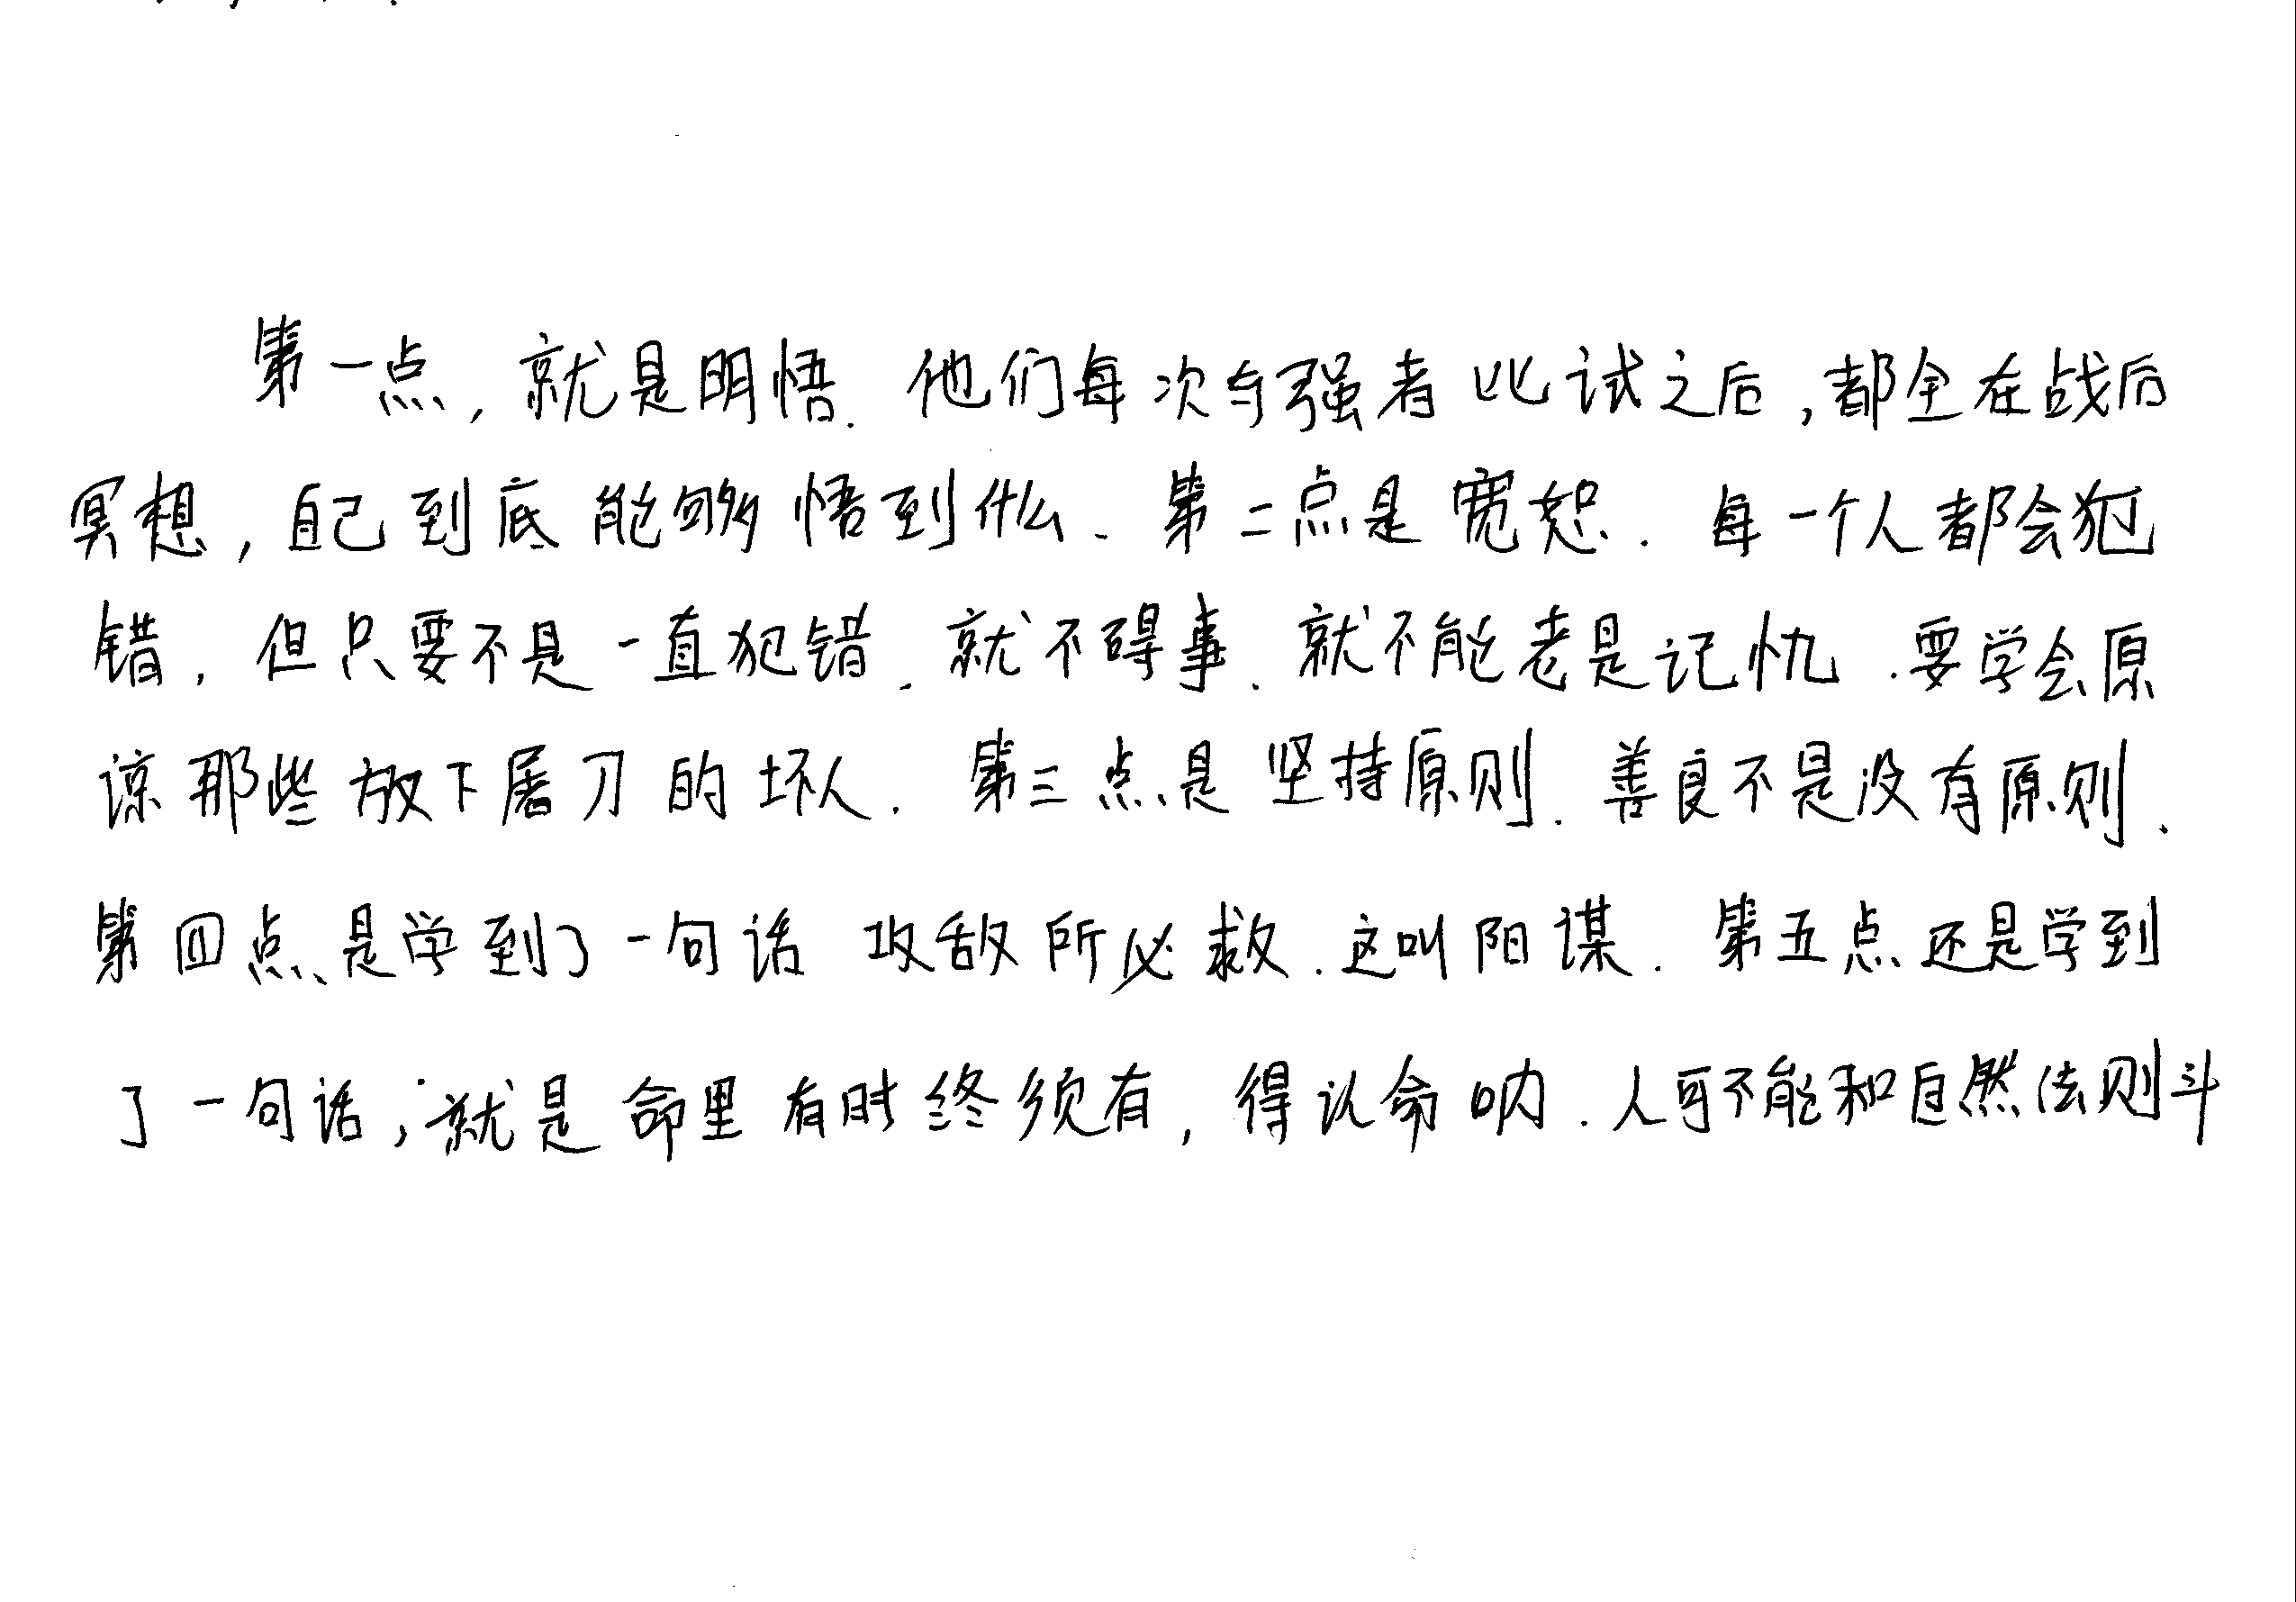 第一点，就是明悟．他们每次与强者比试之后，都全在战后
冥想，自己到底能够悟到什么．第二点是宽恕．每一个人都会犯
错，但只要不是一直犯错．就不碍事．就不能老是记仇．要学会原
谅那些放下屠刀的坏人．第三点是坚持原则．善良不是没有原则．
第四点是学到了一句话 攻敌所必救．这叫阳谋．第五点还是学到
了一句话，就是命里有时终须有，得认命呐．人可不能和自然法则斗